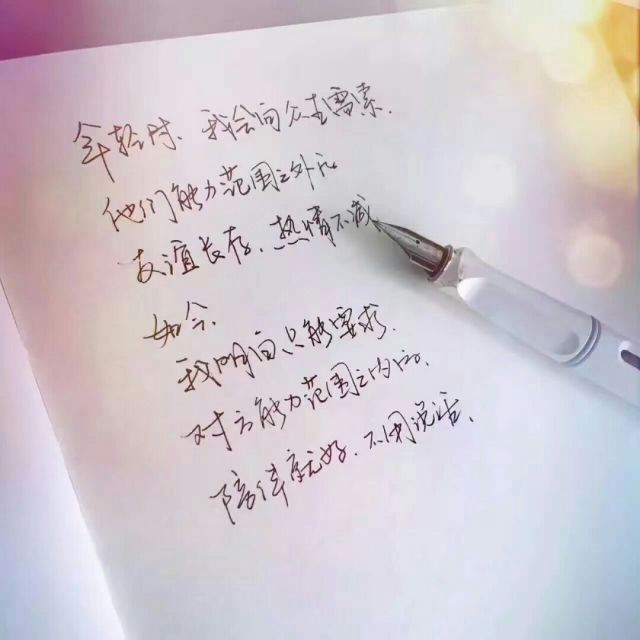 年轻时、我会向众生需索、
他们能力范围之外的
友谊长存、热情不减
如今、
我明白只能要求、
对方能力范围之内的、
陪伴就好、不用说话、